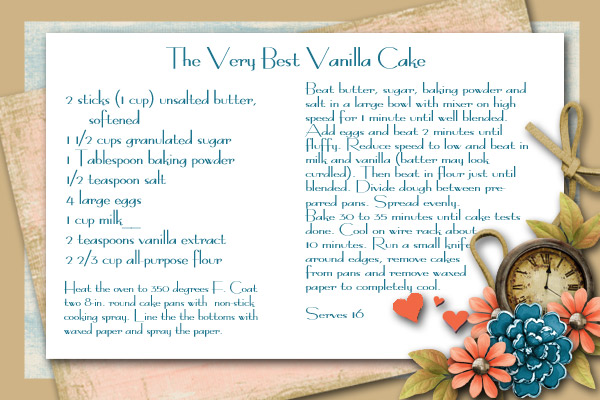 The Very Best Vanilla Cake
2 sticks (1 cup) unsalted butter,
softened
1 1/2 cups granulated sugar
1 Tablespoon baking powder
1/2 teaspoon salt
4 large eggs
1 cup milk__
2 teaspoons vanilla extract
2 2/3 cup all-purpose flour
Heat the oven to 350 degrees F. Coat
two 8-in. round cake pans with non-stick
cooking spray. Line the the bottoms with
waxed paper and spray the paper.
Beat butter, sugar, baking powder and
salt in a large bowl with mixer on high
speed for 1 minute until well blended.
Add eggs and beat 2 minutes until
fluffy. Reduce speed to low and beat in
milk and vanilla (batter may look
curdled). Then beat in flour just until
blended. Divide dough between pre-
parred pans. Spread evenly.
Bake 30 to 35 minutes until cake tests
done. Cool on wire rack about
10 minutes. Run a small knife
around edges, remove cakes
from pans and remove waxed
paper to completely cool.
Serves 16